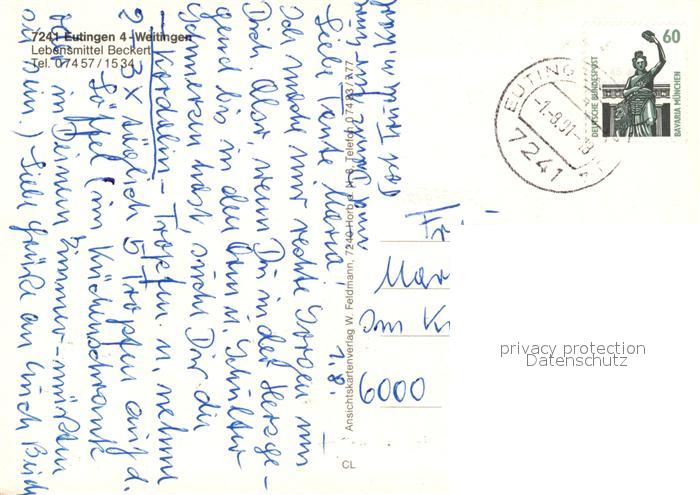 7241 Eutingen 4 - Weitingen
Lebensmittel Beckert
Tel. 0 74 57 / 15 34
1.8.
Liebe Tante Maria!
Ich mache mir rechte Sorgen um
Dich. Also, wenn Du in der Herzge-
gend bis in den Arm u. Schulter
Schmerzen hast, such Dir die
- Kordalin - Tropfen u. nehme
2-3 x täglich 5 Tropfen auf d.
Löffel (im Küchenschrank
oder in Deinem Zimmer - müßten
sie sein.) Liebe Grüße an Euch Beide
Ansichtskartenverlag W. Feldmann, 7240 Horb a. N. 8, Telefon 0 74 83 / 3 77
CL
60
DEUTSCHE BUNDESPOST
BAVARIA MÜNCHEN
EUTING
-1.-8.91-18
7241
Fr
Mar
Im K
6000
privacy protection
Datenschutz